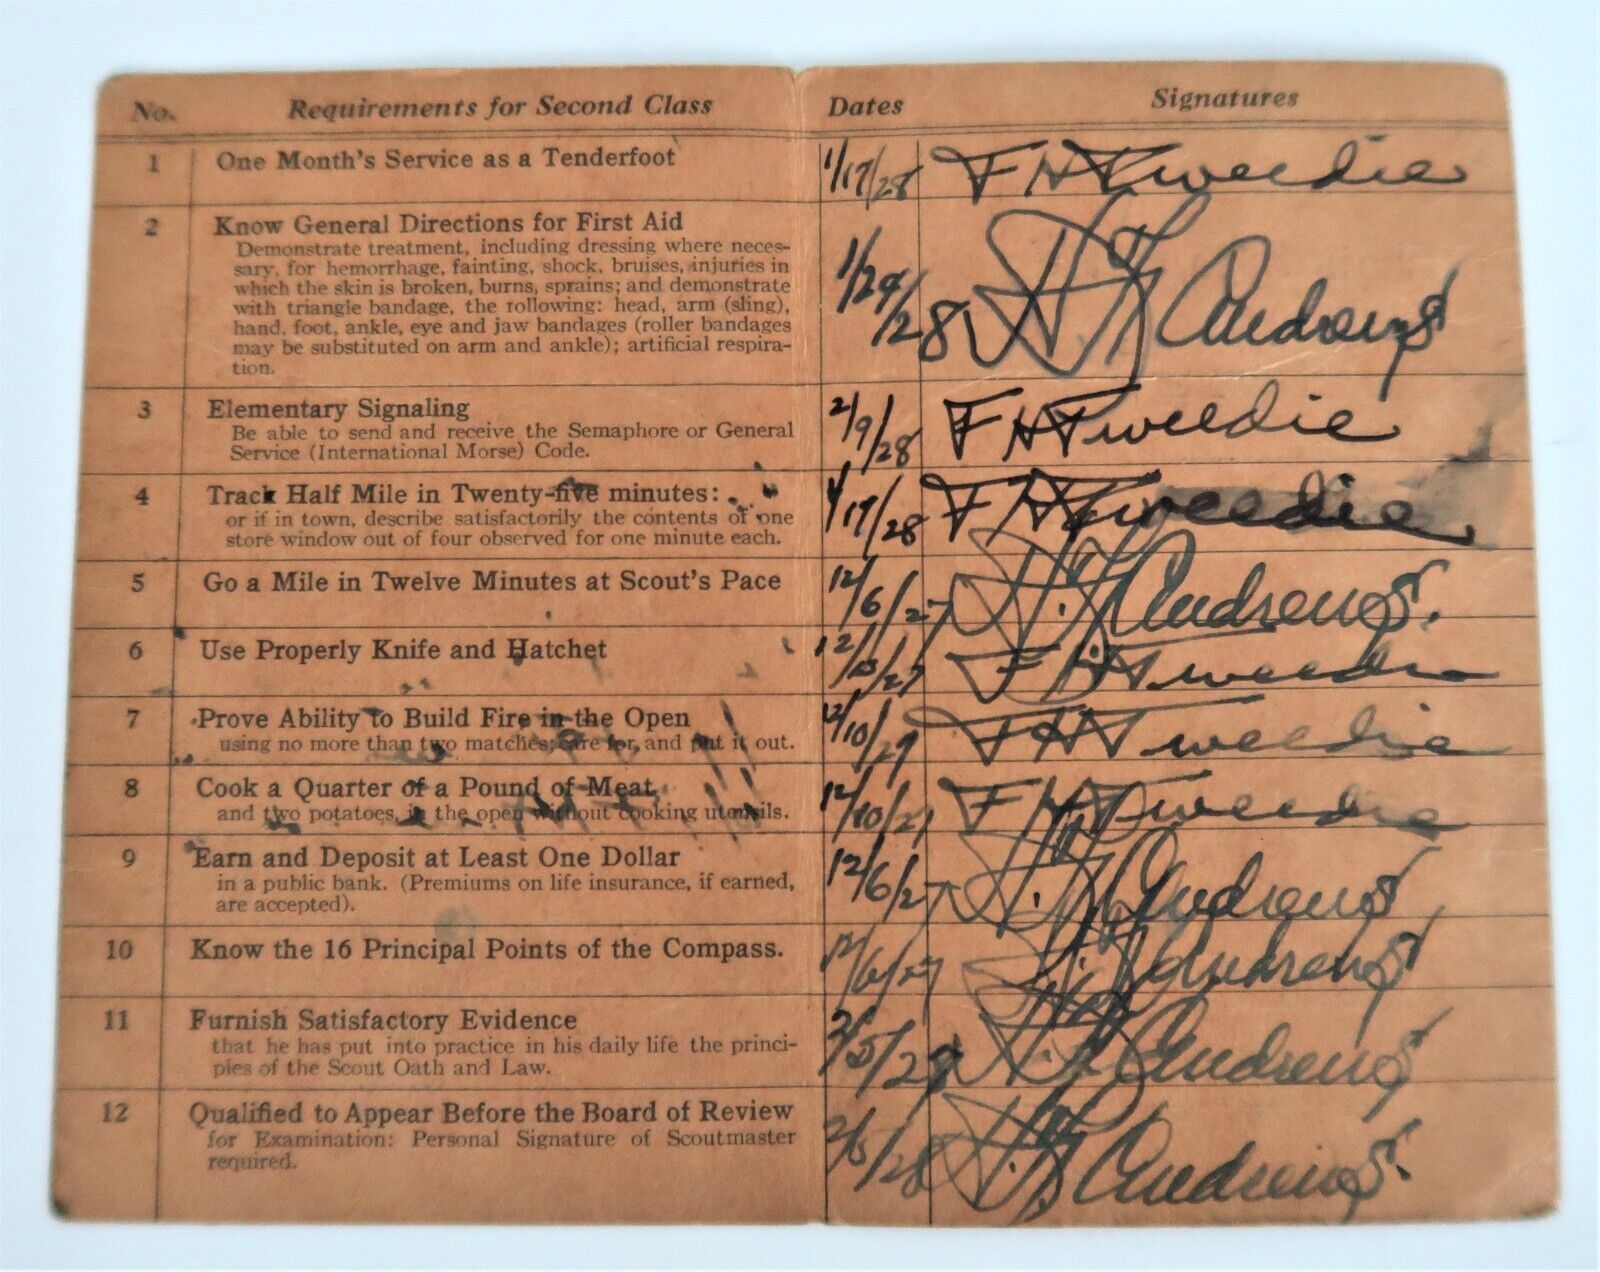 No. Requirements for Second Class Dates Signatures
1 One Month's Service as a Tenderfoot 1/17/28 F H Tweedie
2 Know General Directions for First Aid 1/24/28 Andrews
Demonstrate treatment, including dressing where neces-
sary, for hemorrhage, fainting, shock, bruises, injuries in
which the skin is broken, burns, sprains; and demonstrate
with triangle bandage, the following: head, arm (sling),
hand, foot, ankle, eye and jaw bandages (roller bandages
may be substituted on arm and ankle); artificial respira-
tion.
3 Elementary Signaling 2/9/28 F H Tweedie
Be able to send and receive the Semaphore or General
Service (International Morse) Code.
4 Track Half Mile in Twenty-five minutes: 1/17/28 F H Tweedie
or if in town, describe satisfactorily the contents of one
store window out of four observed for one minute each.
5 Go a Mile in Twelve Minutes at Scout's Pace 12/6/27 Andrews.
6 Use Properly Knife and Hatchet 12/10/27 F H Tweedie
7 Prove Ability to Build Fire in the Open 12/10/27 F H Tweedie
using no more than two matches; care for, and put it out.
8 Cook a Quarter of a Pound of Meat, 12/10/27 F H Tweedie
and two potatoes, in the open without cooking utensils.
9 Earn and Deposit at Least One Dollar 12/6/27 Andrews
in a public bank. (Premiums on life insurance, if earned,
are accepted).
10 Know the 16 Principal Points of the Compass. 12/6/27 Andrews
11 Furnish Satisfactory Evidence 2/5/28 Andrews
that he has put into practice in his daily life the princi-
ples of the Scout Oath and Law.
12 Qualified to Appear Before the Board of Review 2/5/28 Andrews.
for Examination: Personal Signature of Scoutmaster
required.